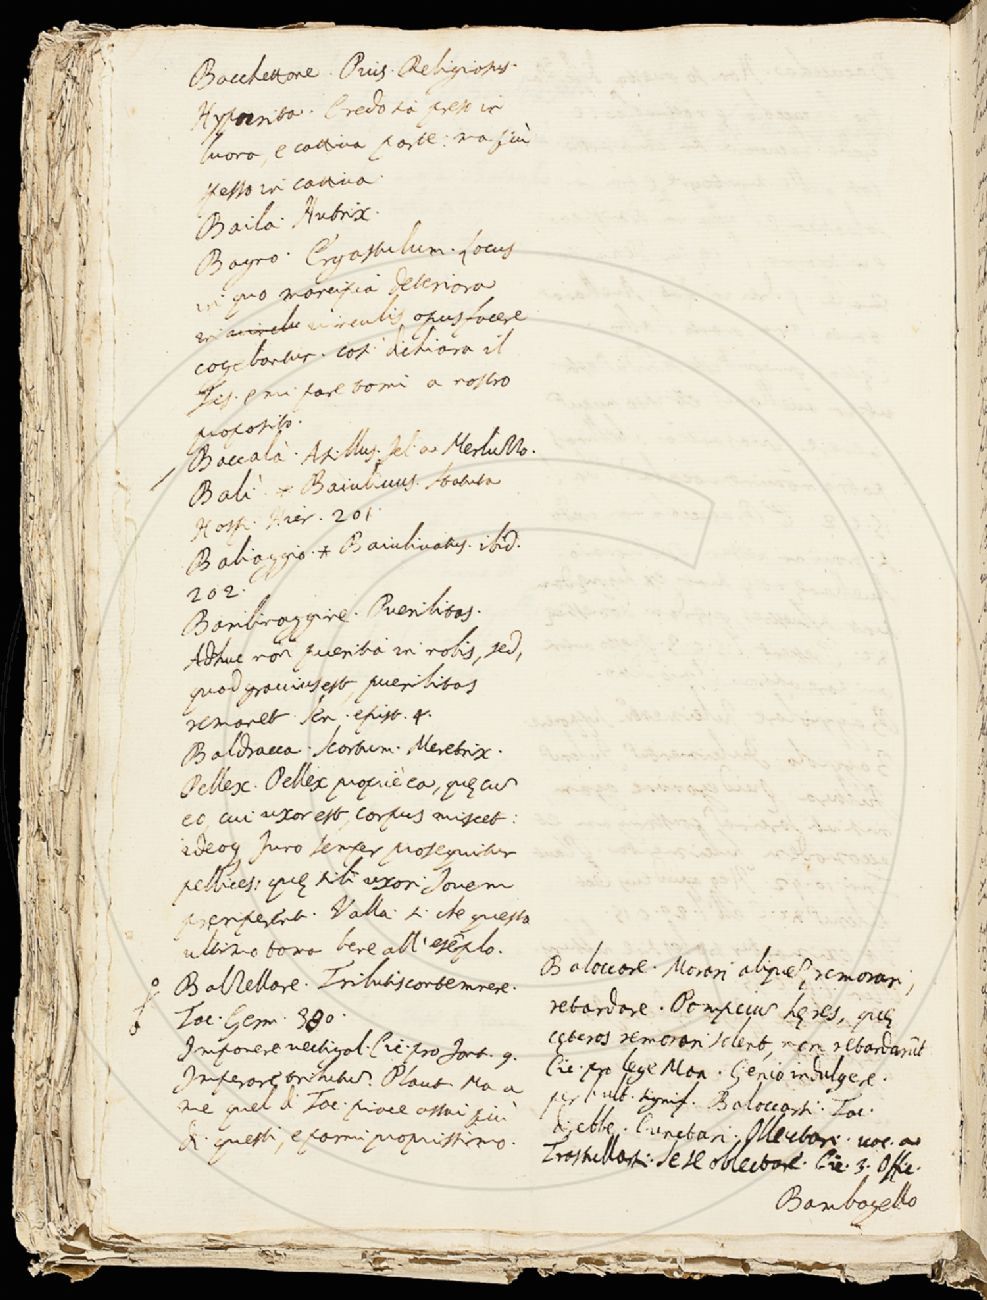 Bacchettone. Pius. Religiosus.
Hypocrita. Credo sia preso in
buona, e cattiva parte: ma più
spesso in cattiva.
Baila. Nutrix.
Bagno. Ergastulum. Locus
in quo mancipia deteriora
in vinculis opus facere
cogebantur. così dichiara il
Tes. e mi pare torni a nostro
proposito.
Baccalà. Asellus. Merluzzo.
Balì. + Baiulivus. Statuta
Hosp. Hier. 201.
Baliaggio. + Baiulivatus. ibid.
202.
Bambinaggine. Puerilitas.
Adhuc non pueritia in nobis, sed,
quod gravius est, puerilitas
remanet. Sen. epist. 4.
Baldracca. Scortum. Meretrix.
Pellex. Pellex propriè ea, quę cũ
eo cui uxor est, corpus miscet:
ideoq Juno semper prosequitur
pellices: quę sibi uxori Jovem
. Valla. si che questo
ultimo torna bene all'esẽplo.
Balzellare. Tributis contemnere.
Tac. Germ. 380.
Imponere vectigal. Cic. pro Font. 9.
Imperare tributũ. Plaut. Ma a
me quel di Tac. piace assai più
di questi, e parmi propriissimo.
Baloccare. Morari aliquẽ, remorari,
retardare. Pompeius hęres, quę
cęteros remorari solent, non retardarũt
Cic. pro lege Man. Genio indulgere.
per l'ult. signif. Baloccarsi. Tac.
direbbe. Cunctari. Oblectari. voc. a
Trastullarsi. Se se oblectare. Cic. 3. Offic.
Bambagello